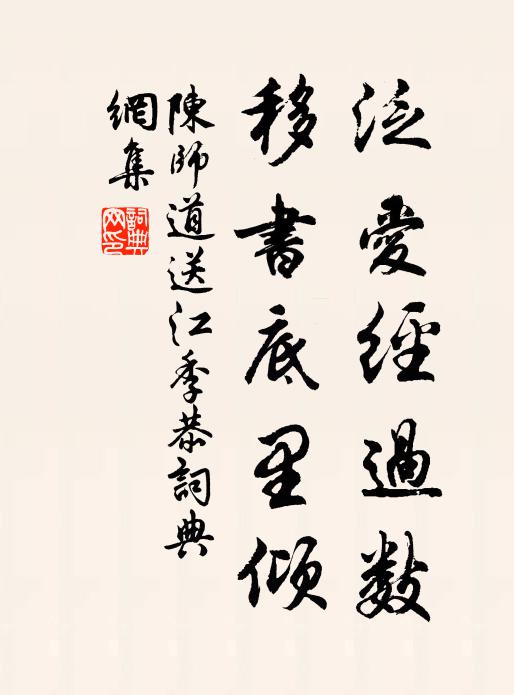 泛愛經過數
移書底里傾
陳師道送江季恭詞典
網集
詞典
网印